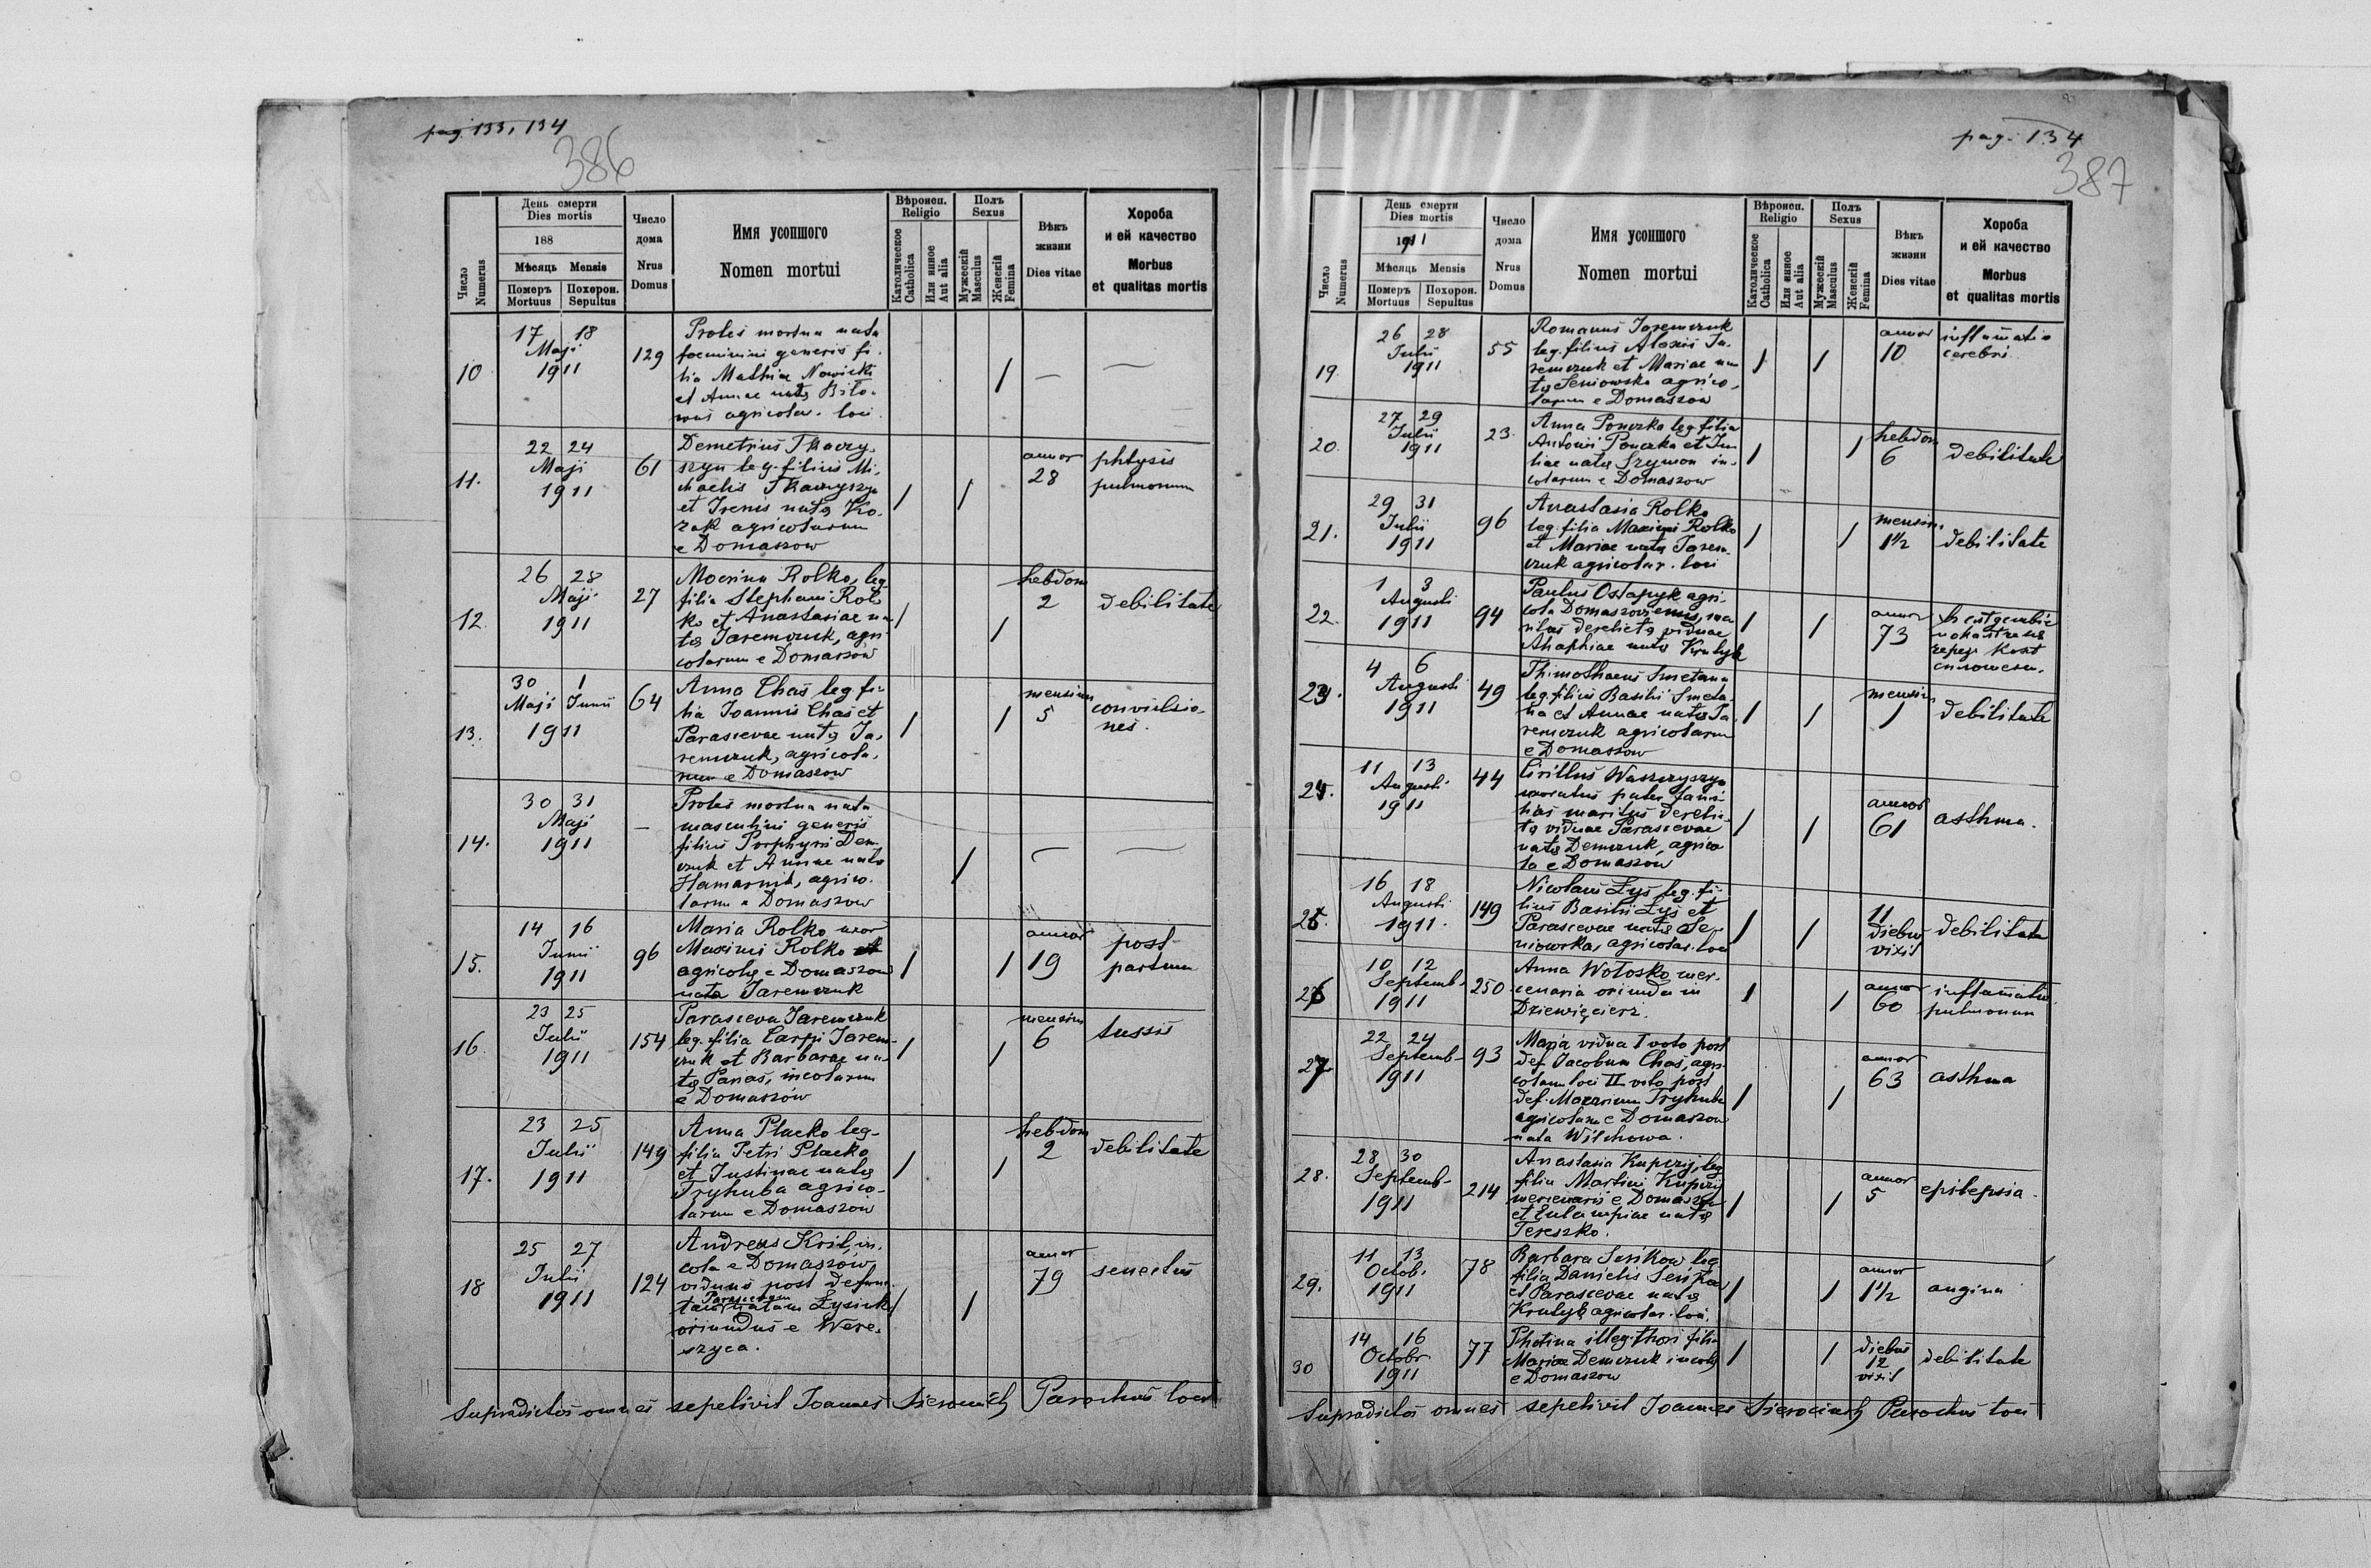 pag. 133, 134
386
Число
Numerus
День смерти
Dies mortis
188
Мѣсяць Mensis
Померъ Похорон.
Mortuus Sepultus
Число
дома
Nrus
Domus
Имя усопшого
Nomen mortui
Вѣроисп.
Religio
Католическое
Catholica
Или инное
Aut alia
Полъ
Sexus
Мужескій
Masculus
Женскій
Femina
Вѣкъ
жизни
Dies vitae
Хороба
и ей качество
Morbus
et qualitas mortis
10 17 18 Maji 1911 129
Proles mortua nata
foeminini generis fi-
lia Mathiae Nowicki
et Annae natę
agricolar. loci
11. 22 24 Maji 1911 61
Demetrius Tkaczy-
szyn leg. filius Mi-
chaelis Tkaczyszyn
et Irenis natę Ko-
zak agricolarum
e Domaszow
annor 28 phtysis pulmonum
12. 26 28 Maji 1911 27
Mocrina Rolko, leg.
filia Stephani Rol-
ko et Anastasiae na-
tę Jaremczuk, agri-
colarum e Domaszów
hebdom 2 debilitate
13. 30 1 Maji Junii 1911 64
Anna Chaś leg. fi-
lia Joannis Chaś et
Parascevae natę Ja-
remczuk, agricola-
rum e Domaszow
mensium 5 convulsio-
nes.
14. 30 31 Maji 1911 —
Proles mortua nata
masculini generis
filius Porphyrii Dem-
czuk et Annae natę
Hamarnik, agrico-
larum e Domaszow
15. 14 16 Junii 1911 96
Maria Rolko uxor
Maximi Rolko
agricolę e Domaszow
nata Jaremczuk
annor 19 post partum
16. 23 25 Julii 1911 154
Parasceva Jaremczuk
leg. filia Carpi Jarem-
czuk et Barbarae na-
tę Panas, incolarum
e Domaszów
mensium 6 tussis
17. 23 25 Julii 1911 149
Anna Placko leg.
filia Petri Placko
et Justinae natę
Tryhuba agrico-
larum e Domaszow
hebdom 2 debilitate
18 25 27 Julii 1911 124
Andreas Kril, in-
cola e Domaszow,
viduus post defunc-
tam Parascevam natam Łysiak
oriundus e Were-
szyca.
annor 79 senectus
Supradictos omnes sepelivit Joannes Parochus loci
pag. 134
387
Число
Numerus
День смерти
Dies mortis
1911
Мѣсяць Mensis
Померъ Похорон.
Mortuus Sepultus
Число
дома
Nrus
Domus
Имя усопшого
Nomen mortui
Вѣроисп.
Religio
Католическое
Catholica
Или инное
Aut alia
Полъ
Sexus
Мужескій
Masculus
Женскій
Femina
Вѣкъ
жизни
Dies vitae
Хороба
и ей качество
Morbus
et qualitas mortis
19. 26 28 Julii 1911 55
Romanus Jaremczuk
leg. filius Alexii Ja-
remczuk et Mariae na-
tę Seniowska agrico-
larum e Domaszow
annor 10 inflamatio
cerebri
20. 27 29 Julii 1911 23.
Anna Ponczka leg. filia
Antonii Ponczka et Ju-
liae natę Szymon in-
colarum e Domaszow
hebdom 6 debilitate
21. 29 31 Julii 1911 96
Anastasia Rolko
leg. filia Maximi Rolko
et Mariae natę Jarem-
czuk agricolar. loci
mensium 1½ debilitate
22. 1 3 Augusti 1911 94
Paulus Ostapyk agri-
cola Domaszoviensis, ma-
ritus derelictę viduae
Ahaphiae natę Krulyk
annor 73
23. 4 6 Augusti 1911 49
Thimothaeus Smetana
leg. filius Basilii Smeta-
na et Annae natę Ja-
remczuk agricolarum
e Domaszow
mensium 1 debilitate
24. 11 13 Augusti 1911 44
Cirillus Waszczyszyn
uxoratus pater fami-
lias maritus derelic-
tę viduae Parascevae
natę Demczuk, agrico-
la e Domaszow
annor 61 asthma.
25. 16 18 Augusti 1911. 149
Nicolaus Łyś leg. fi-
lius Basilii Łyś et
Parascevae natę Se-
niowska, agricolar. loci
11 diebus vixit debilitate
26 10 12 Septemb. 1911 250
Anna Wołosko mer-
cenaria oriunda in
Dziewięcierz.
annor 60 inflamatio
pulmonum
27 22 24 Septemb. 1911 93
Maria vidua I voto post
def. Jacobum Chaś, agri-
colam loci II voto post
def. Tryhuba
agricolam e Domaszow
nata Wilchowa.
annor 63 asthma
28. 28 30 Septemb. 1911 214
Anastasia Kupczyj, leg.
filia Martini Kupczyj
mercenarii e Domaszow
et Eulampiae natę
Tereszko.
annor 5 epilepsia.
29. 11 13 Octob. 1911 78
Barbara Senkow leg.
filia Danielis Senkow
et Parascevae natę
Krulyk agricolar. loci.
annor 1½ angina
30 14 16 Octobr 1911 77
Photina illeg. thori filia
Mariae Demczuk incolę
e Domaszow
diebus 12 vixit debilitate
Supradictos omnes sepelivit Joannes Parochus loci